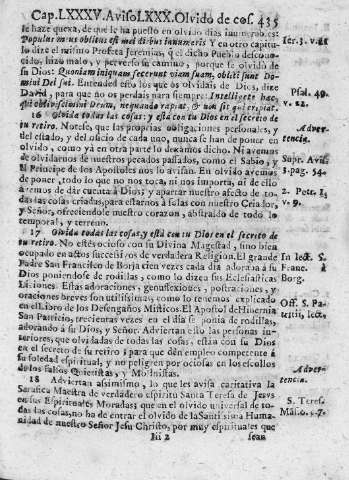 Cap.LXXXV.AvisoLXXX.Olvido de cos. 435
se haze quexa, de que le ha puesto en olvido dias innumerables:
Populus meus oblitus est mei diebus innumeris Y en otro capitu-
lo dize el mismo Profeta Jeremias, q̃ el dicho Pueblo descono-
cido, hizo malo, y perverso su camino, porque se olvidò de
su Dios: Quoniam iniquam fecerunt viam suam, obliti sunt Do-
mini Dei sui. Entended esto los que os olvidais de Dios, dize
David, para que no os perdais para siempre: Intelligite hæc,
qui obliviscimini Deum, nequando rapiat, & non sit qui eripiat.
16 Olvida todas las cosas: y està con tu Dios en el secreto de
tu retiro. Notese, que las proprias obligaciones personales, y
del estado, y del oficio de cada uno, nunca se han de poner en
olvido, como yà en otra parte lo dexamos dicho. Ni avemos
de olvidarnos de nuestros pecados passados, como el Sabio, y
el Principe de los Apostoles nos lo avisan. En olvido avemos
de poner, todo lo que no nos toca, ni nos importa, ni de ello
avremos de dàr cuenta à Dios; y apartar nuestro afecto de to-
das las cosas criadas, para estarnos à solas con nuestro Criador,
y Señor, ofreciendole nuestro corazon, abstraìdo de todo lo
temporal, y terreno.
17 Olvida todas las cosas, y està con tu Dios en el secreto de
tu retiro. No estès ocioso con su Divina Magestad, sino bien
ocupado en actos succesivos de verdadera Religion. El grande
Padre San Francisco de Borja cien vezes cada dia adoraba à su
Dios poniendose de rodillas, como lo dizen sus Eclesiasticas
Lecciones. Estas adoraciones, genuflexiones, postraciones, y
oraciones breves son utilissimas, como lo tenemos explicado
en el Libro de los Desengaños Misticos. El Apostol de Hibernia
San Patricio, trecientas vezes en el dia se ponia de rodillas,
adorando à su Dios, y Señor. Adviertan ello las personas in-
teriores, que olvidadas de todas las cosas, estàn con su Dios
en el secreto de su retiro; para que dèn empleo competente à
su soledad espiritual, y no peligren por ociosas en los escollos
de los falsos Quietistas, y Molinistas.
18 Adviertan assimismo, lo que les avisa caritativa la
Serafica Maestra de verdadero espiritu Santa Teresa de Jesus
en sus Espirituales Moradas; que en el olvido universal de to-
das las cosas, no ha de entrar el olvido de la Santissima Huma-
nidad de nuestro Señor Jesu Christo, por muy espirituales que
Iii 2 sean
Ier. 3. v. 21
Psal. 49.
v. 22.
Adver-
tencia.
Supr. Avis.
3. pag. 54.
2. Petr. 1.
v. 9.
In lect. S.
Franc. à
Borg.
Off. S. Pa-
tritii, lect.
Adver-
tencia.
S. Teres.